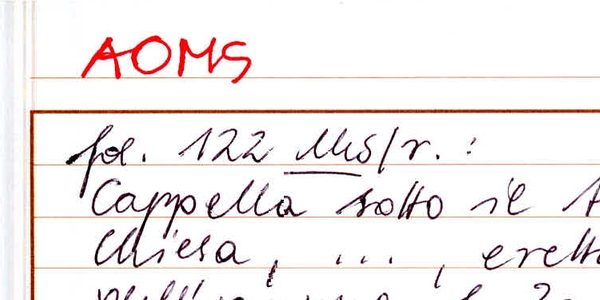 AOMS
fol. 122 Ms/r. :
Cappella sotto il
Chiesa, ..., erett